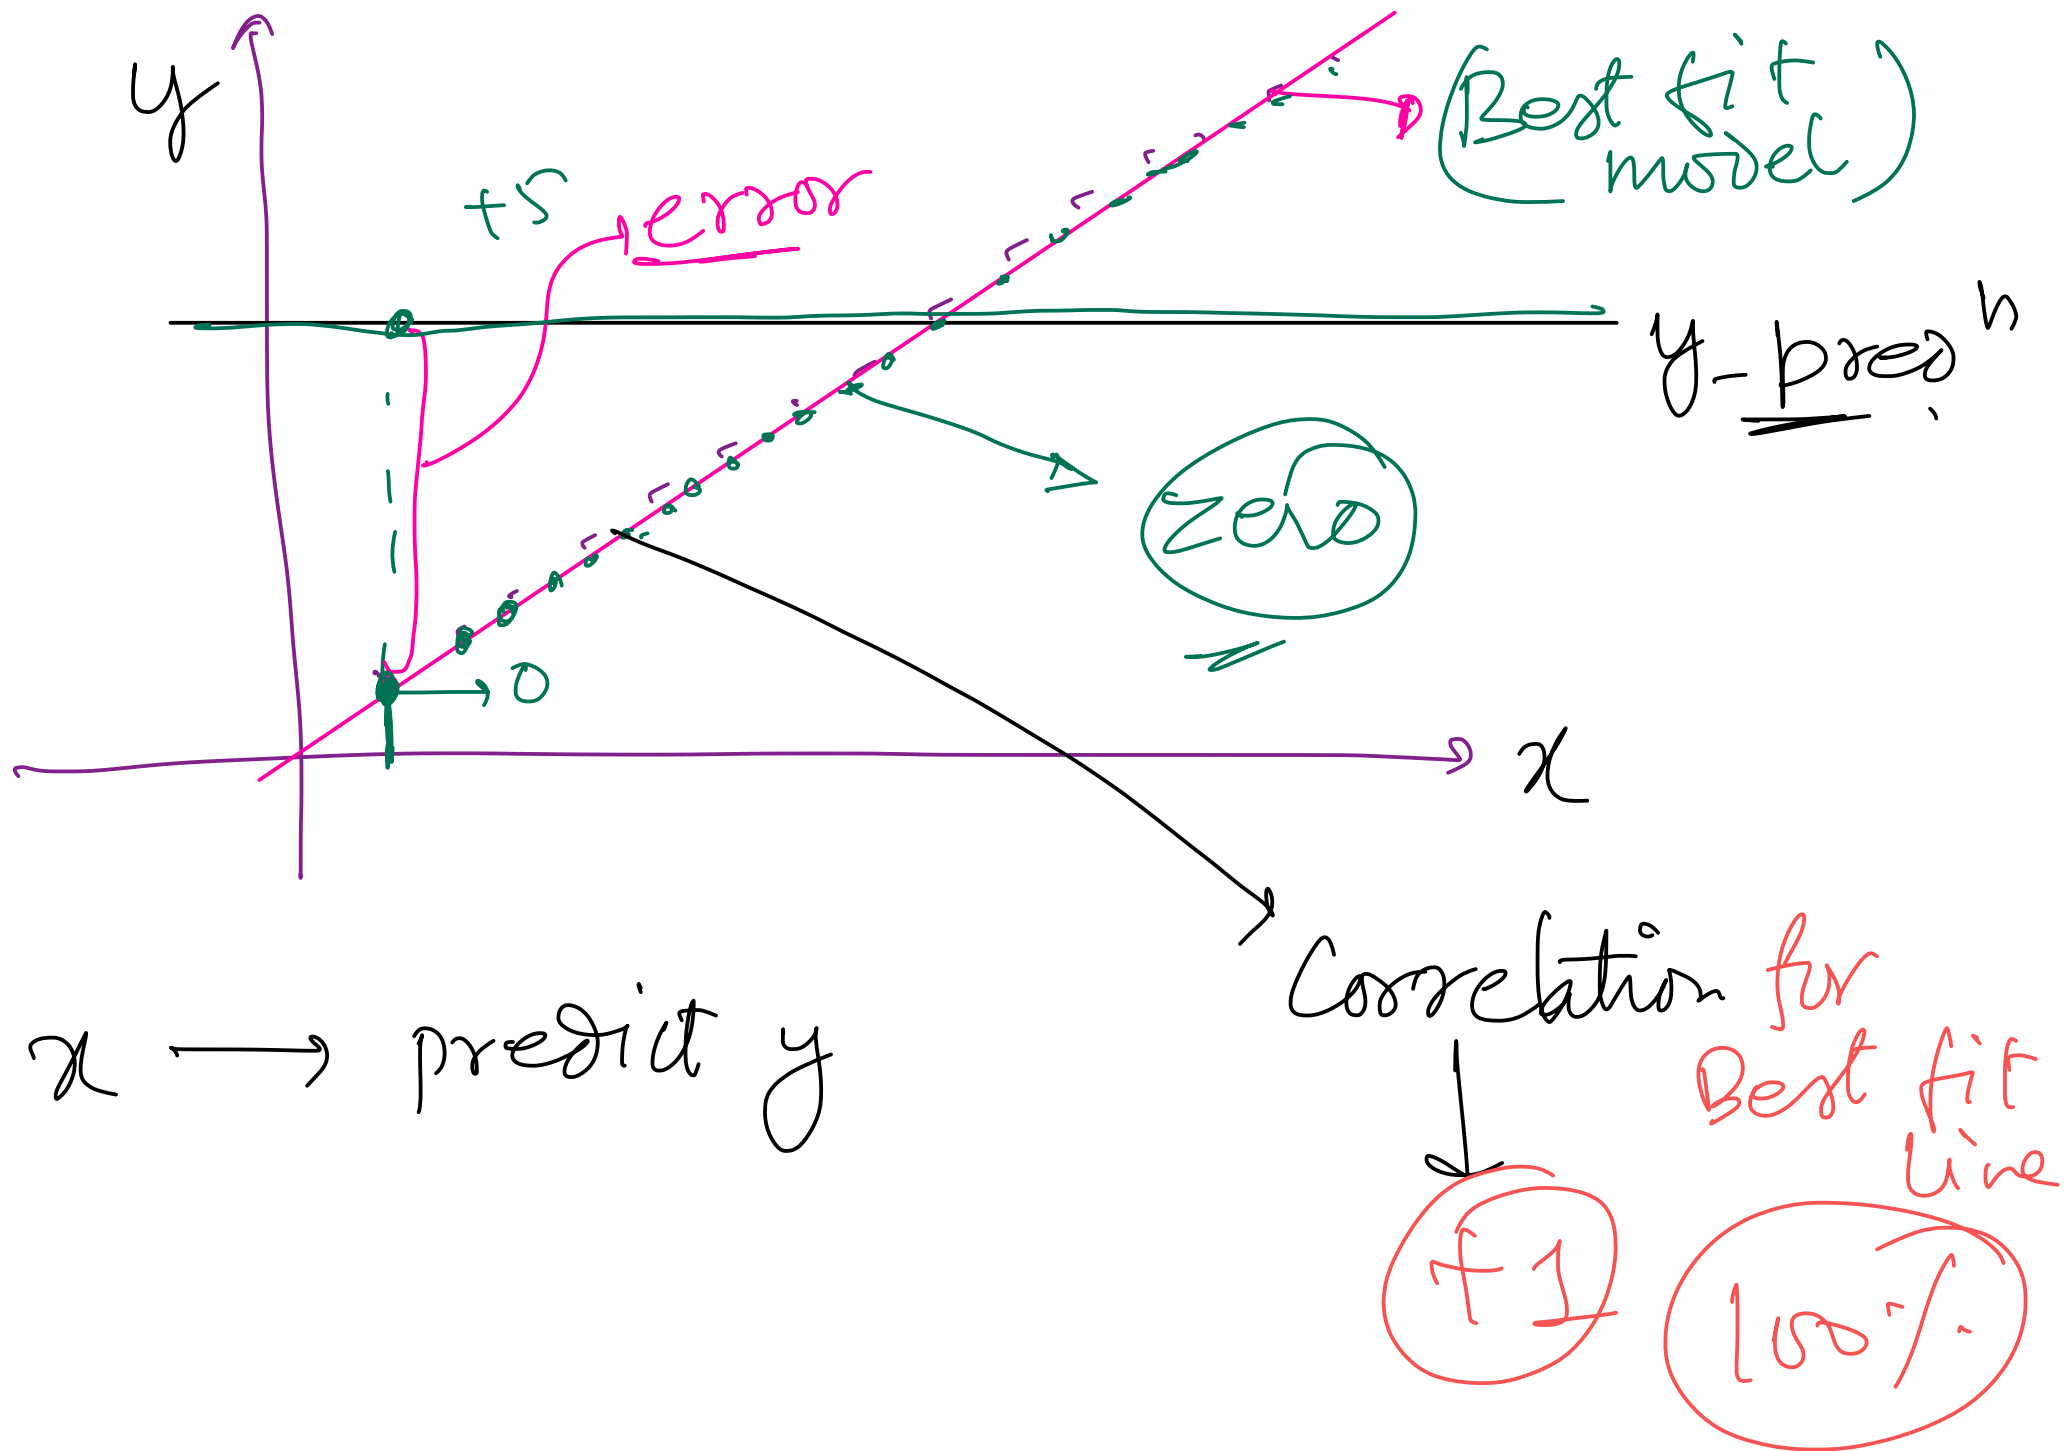 y
+5
error
(Best fit
model)
zero
0
x
x → predict y
Correlation
for
Best fit
line
+1
100%